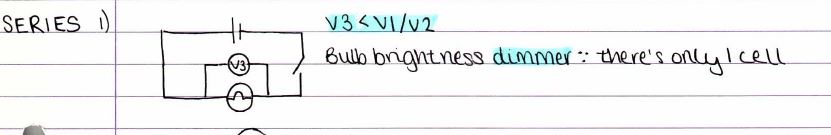 SERIES 1) V3 < V1/V2
Bulb brightness dimmer ∵ there's only 1 cell
V3